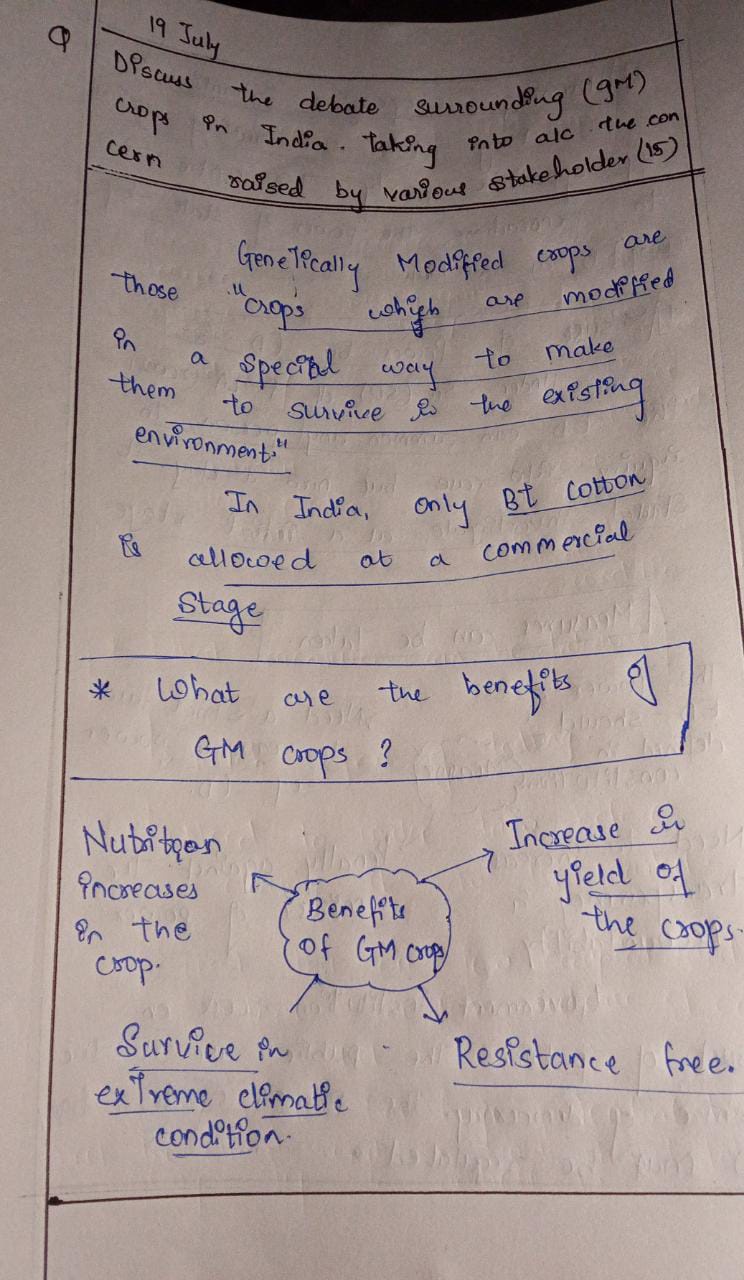 Q
19 July
Discuss the debate surrounding (GM)
crops in India. taking into a/c the con
cern raised by various stakeholder (15)
Genetically Modified crops are
those "crops which are modified
in a special way to make
them to survive in the existing
environment."
In India, only Bt cotton
is allowed at a commercial
stage
* What are the benefits of
GM crops ?
Nutrition
increases
in the
crop.
Benefits
of GM crops
Increase in
yield of
the crops.
Survive in
extreme climatic
condition.
Resistance free.